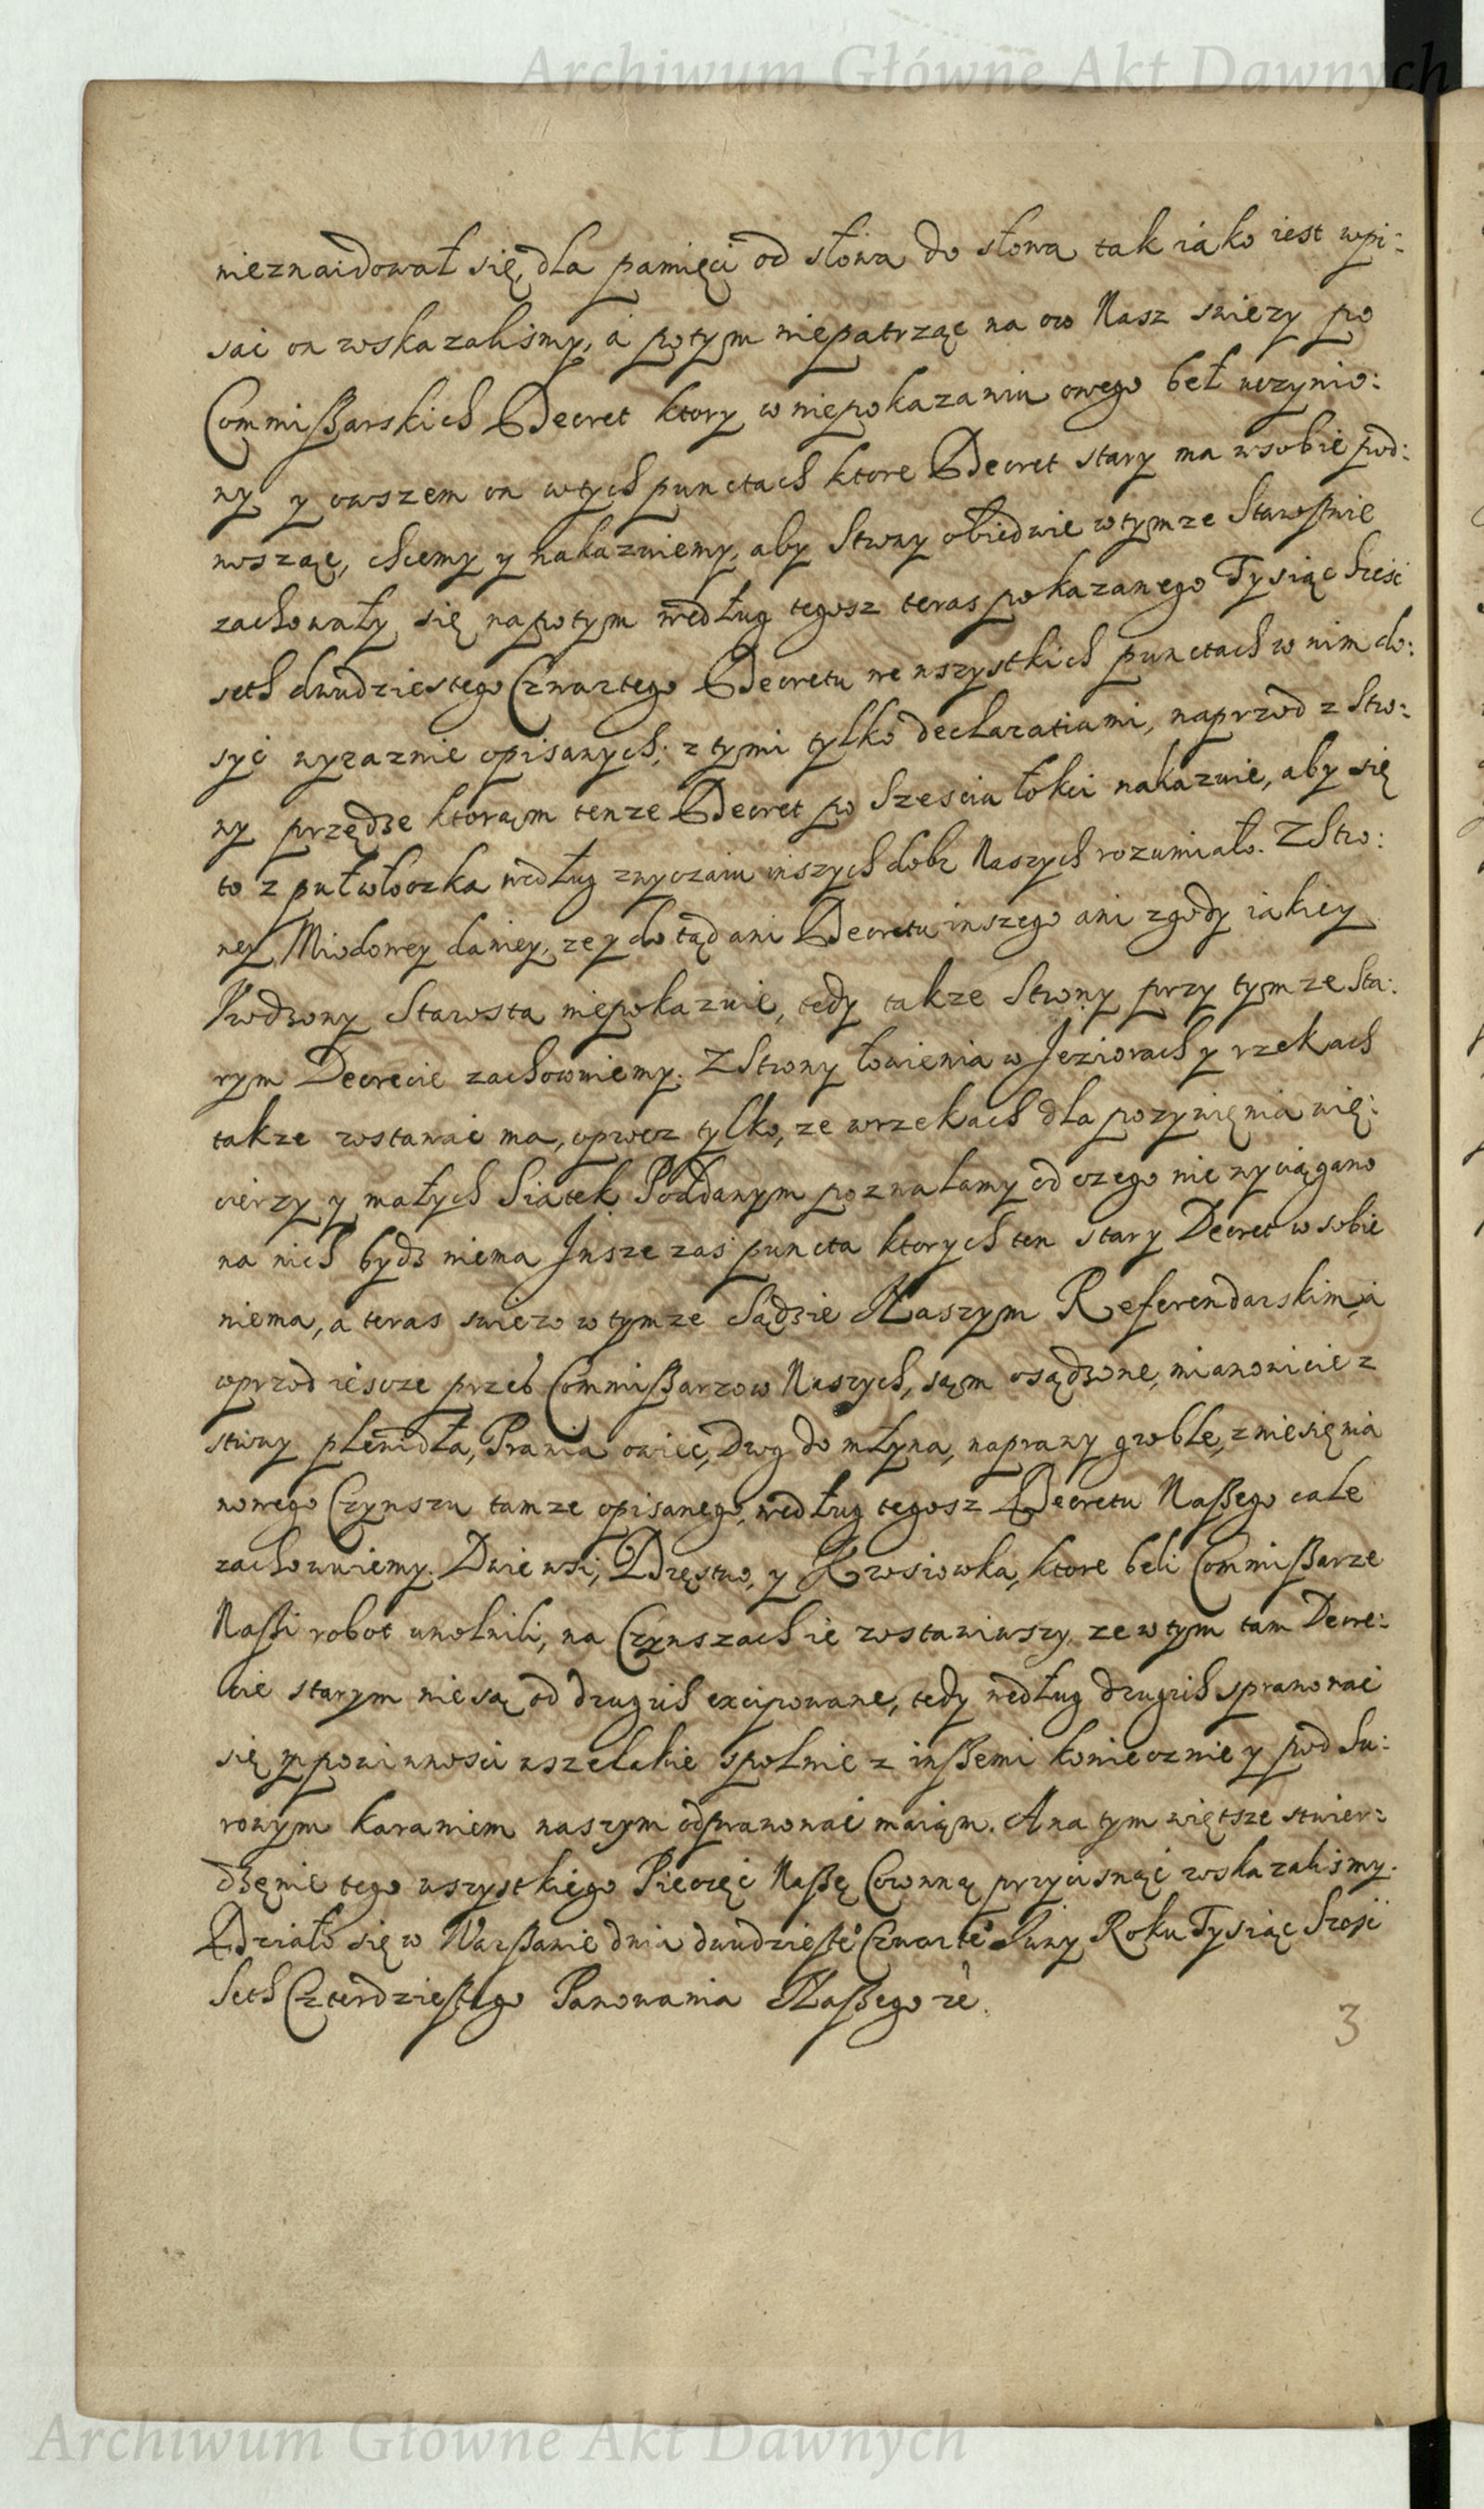 Archiwum Główne Akt Dawnych
nieznaidował się, dla pamięci od słowa do słowa tak iako iest wpi:
sać on wskazaliśmy, á potym niepatrząc na ow Nasz swiezy po
Commißarskich Decret ktory w niepokazaniu owego beł uczynio:
ny, y owszem on wtych punctach ktore Decret stary ma wsobie pod:
nosząc, chcemy y nakazuiemy, aby Strony obiedwie wtymze Starostwie
zachowały się napotym według tegosz teras pokazanego Tysiąc Sześć
seth dwudziestego Czwartego Decretu we wszystkich punctach w nim do:
syć wyraznie opisanych, z tymi tylko declaratiami, naprzod z Stro:
ny przędze ktorąm tenze Decret po Szesciu łokci nakazuie, aby się
to z puł włoczka według zwyczaiu inszych dobr Naszych rozumiało. Z Stro:
ney Miodowey daniey, ze y do tąd ani Decretu inszego ani zgody iakiey
Vrodzony Starosta niepokazuie, tedy takze Strony przy tymze Sta:
rym Decrecie zachowuiemy. Z Strony łowienia w Jeziorach y rzekach
takze zostawać ma, oprocz tylko, ze wrzekach dla pozywięnia wię:
cierzy y małych Siatek Poddanym pozwalamy od czego nie wyciągano
na nich bydz niema Jnsze zaś puncta ktorych ten stary Decret w sobie
niema, a teras swiezo w tymze Sądzie Naszym Referendarskim, á
wprzod iescze przeb Commißarzow Naszych, sąm osądzone, mianowicie z
strony plewidła, Prania owiec, Drog do młyna, naprawy groble, zniesięnia
nowego Czynszu tamze opisanego, według tegosz Decretu Naßego cale
zachowuiemy. Dwie wsi, Zdręstwo, y Krosiowka, ktore beli Commißarze
Naßi robot uwolnili, na Czynszach ie zostawiwszy, ze w tym tam Decre:
cie starym nie są od drugich excipowane, tedy według drugich sprawować
się y powinności wszelakie społnie z inßemi koniecznie y pod Su:
rowym karaniem naszym odprawować maiąm. A na tym więtsze stwier:
dzęnie tego wszystkiego Pieczęć Naßę Coronną przycisnąć wskazaliśmy.
Działo się w Warßawie dnia dwudziesteº Czwarteº Juny Roku Tysiąc Sześć
Seth Czterdziestego Panowania Naßego ze.
3
Archiwum Główne Akt Dawnych